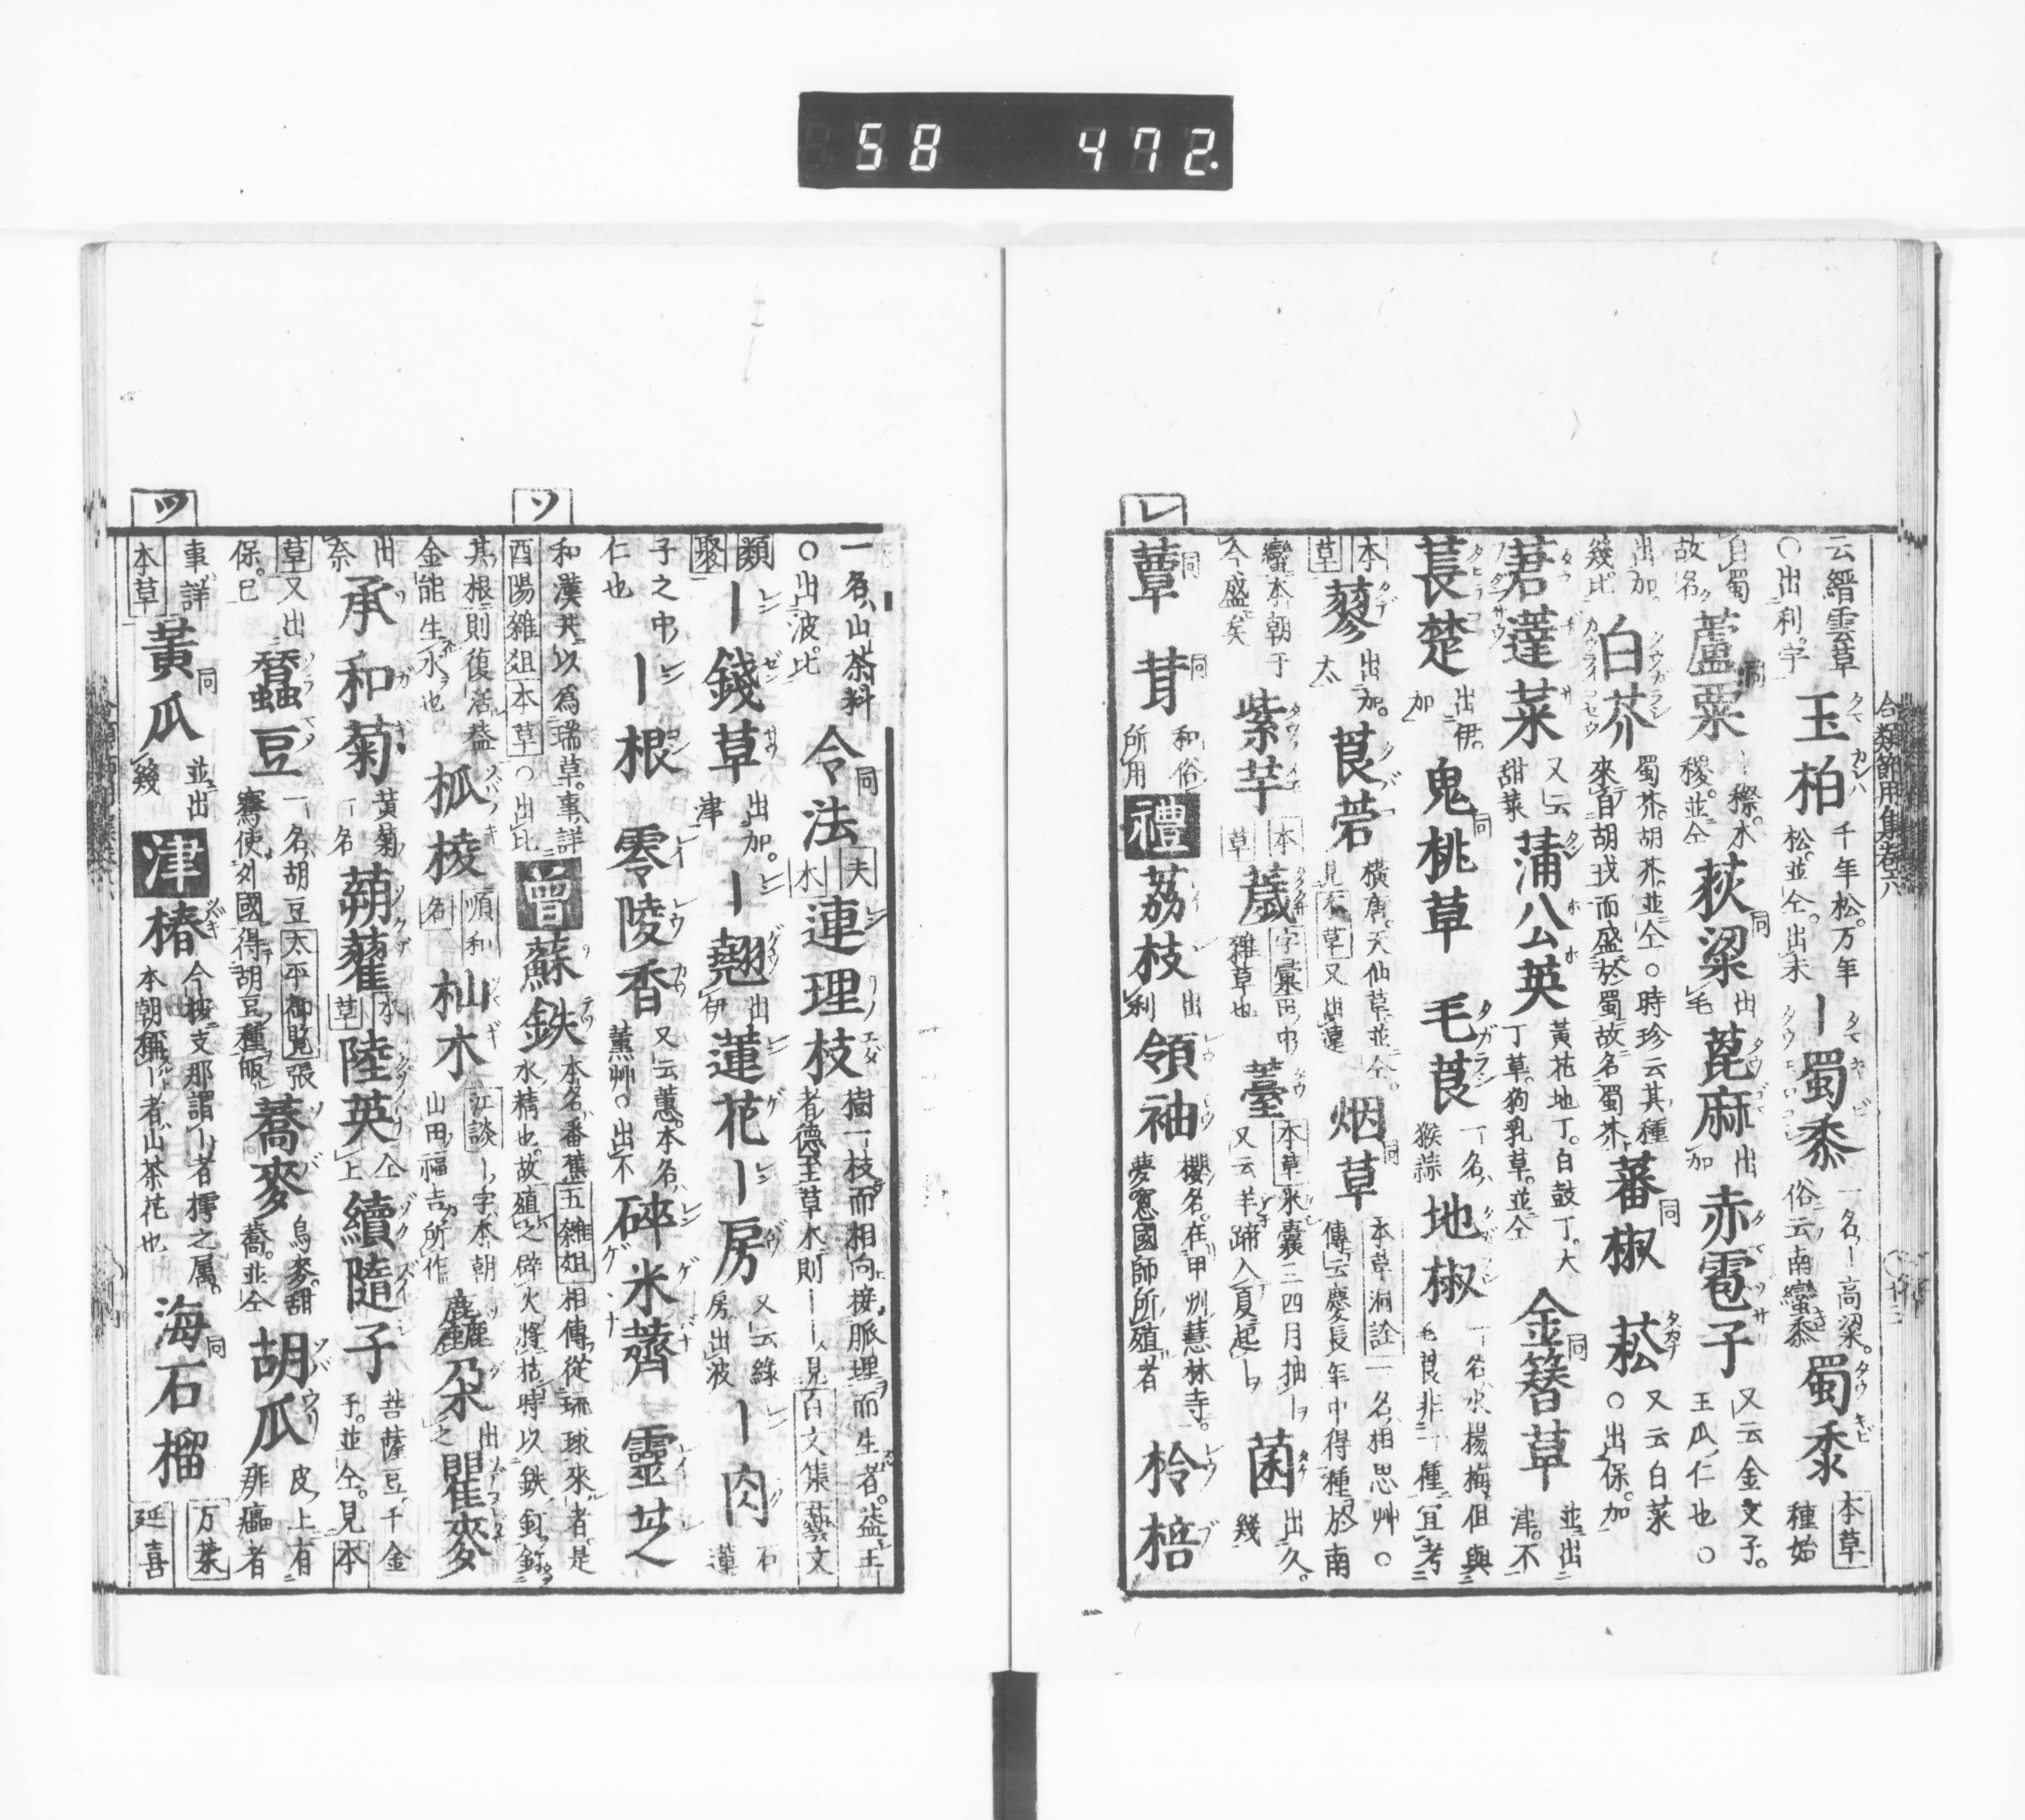 58 472.
合類節用集卷六
云縉雲草
○出利。字
玉柏 千年松。万年松。並仝。出末
｜蜀黍 一名｜高梁。俗云南蠻黍
蜀黍 本草 種始
自蜀故名
蘆粟 ｜穄。水稷。並仝
荻梁 同 出毛
蓖麻 出加
赤雹子 又云金文子。王瓜仁也。○
出加。幾比
白芥 蜀芥。胡芥。並仝○時珍云其種來自胡戎而盛於蜀故名蜀芥
蕃椒 同
菘 又云白菜○出保。加
莙薘菜 又云甜菜
蒲公英 黃花地丁。白鼓丁。大丁草。狗乳草。並仝
金簪草 同 並出津。不
萇楚 出伊。加
鬼桃草 同
毛茛 一名猴蒜
地椒 一名火楊梅但與毛茛非一種宜考
本草
蓼 出加。太
莨菪 橫唐。天仙草。並仝。見本草又出遠
烟草 同 本草洞詮一名相思艸。○傳云慶長年中得種於南
蠻本朝于今盛矣
紫芋 本草
薉 字彙田中雜草也
薹 本草 氷囊三四月抽｜又云羊蹄入夏起｜
菌 出久。幾
蕈 同
茸 同 和俗所用
禮
荔枝 出利
領袖 櫻名。在甲州慧林寺。夢窓國師所殖者
柃棓
レ
一名山茶科
○出波。比
令法 同 夫木
連理枝 樹一枝而相向接脈理而生者。盖王者德至草木則｜｜見百文集 藝文
類聚
｜錢草 出加。津
｜翹 出伊
蓮花
｜房 又云綠房出波
｜肉 石蓮
子之中仁也
｜根
零陵香 又云蕙。本名薰艸○出不
碎米薺
靈芝
和漢共以為瑞草。事詳酉陽雜俎 本草○出比
曾
蘇鉄 本名番蕉五雜俎相傳從琉球來者是水精也。故殖之辟火將枯時以鉄釘釘
其根則復活盖金能生水也
柧棱 順和名
杣木 江談｜字本朝山田福吉所作
麤朶 出之
瞿麥
出奈
承和菊 黃菊一名
蒴藋 本草
陸英 仝上
續隨子 菩薩豆。千金子。並仝。見本
草又出保。巳
蠶豆 一名胡豆太平御覧張騫使外國得胡豆種皈
蕎麥 烏麥。甜蕎。並仝
胡瓜 皮上有痱瘟者
事詳本草
黃瓜 同 並出幾
津
椿 今按支那謂｜者樗之属。本朝稱｜者山茶花也
海石榴 同 万葉 延喜
ソ
ツ